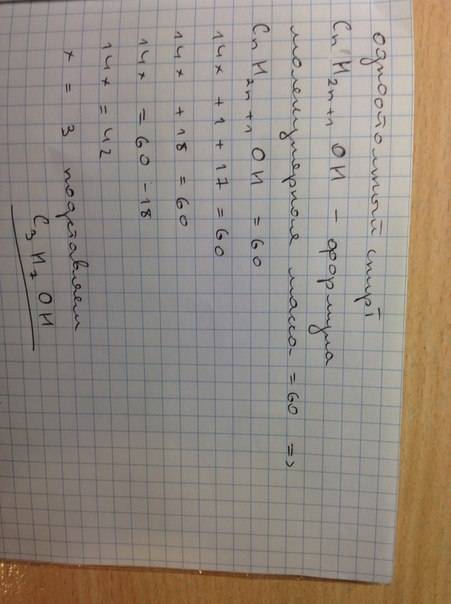 одноатомный спирт
CnH2n+1OH – формула
молекулярная масса = 60 =>
CnH2n+1OH = 60
14x + 1 + 17 = 60
14x + 18 = 60
14x = 60 - 18
14x = 42
x = 3 подставляем
C3H7OH